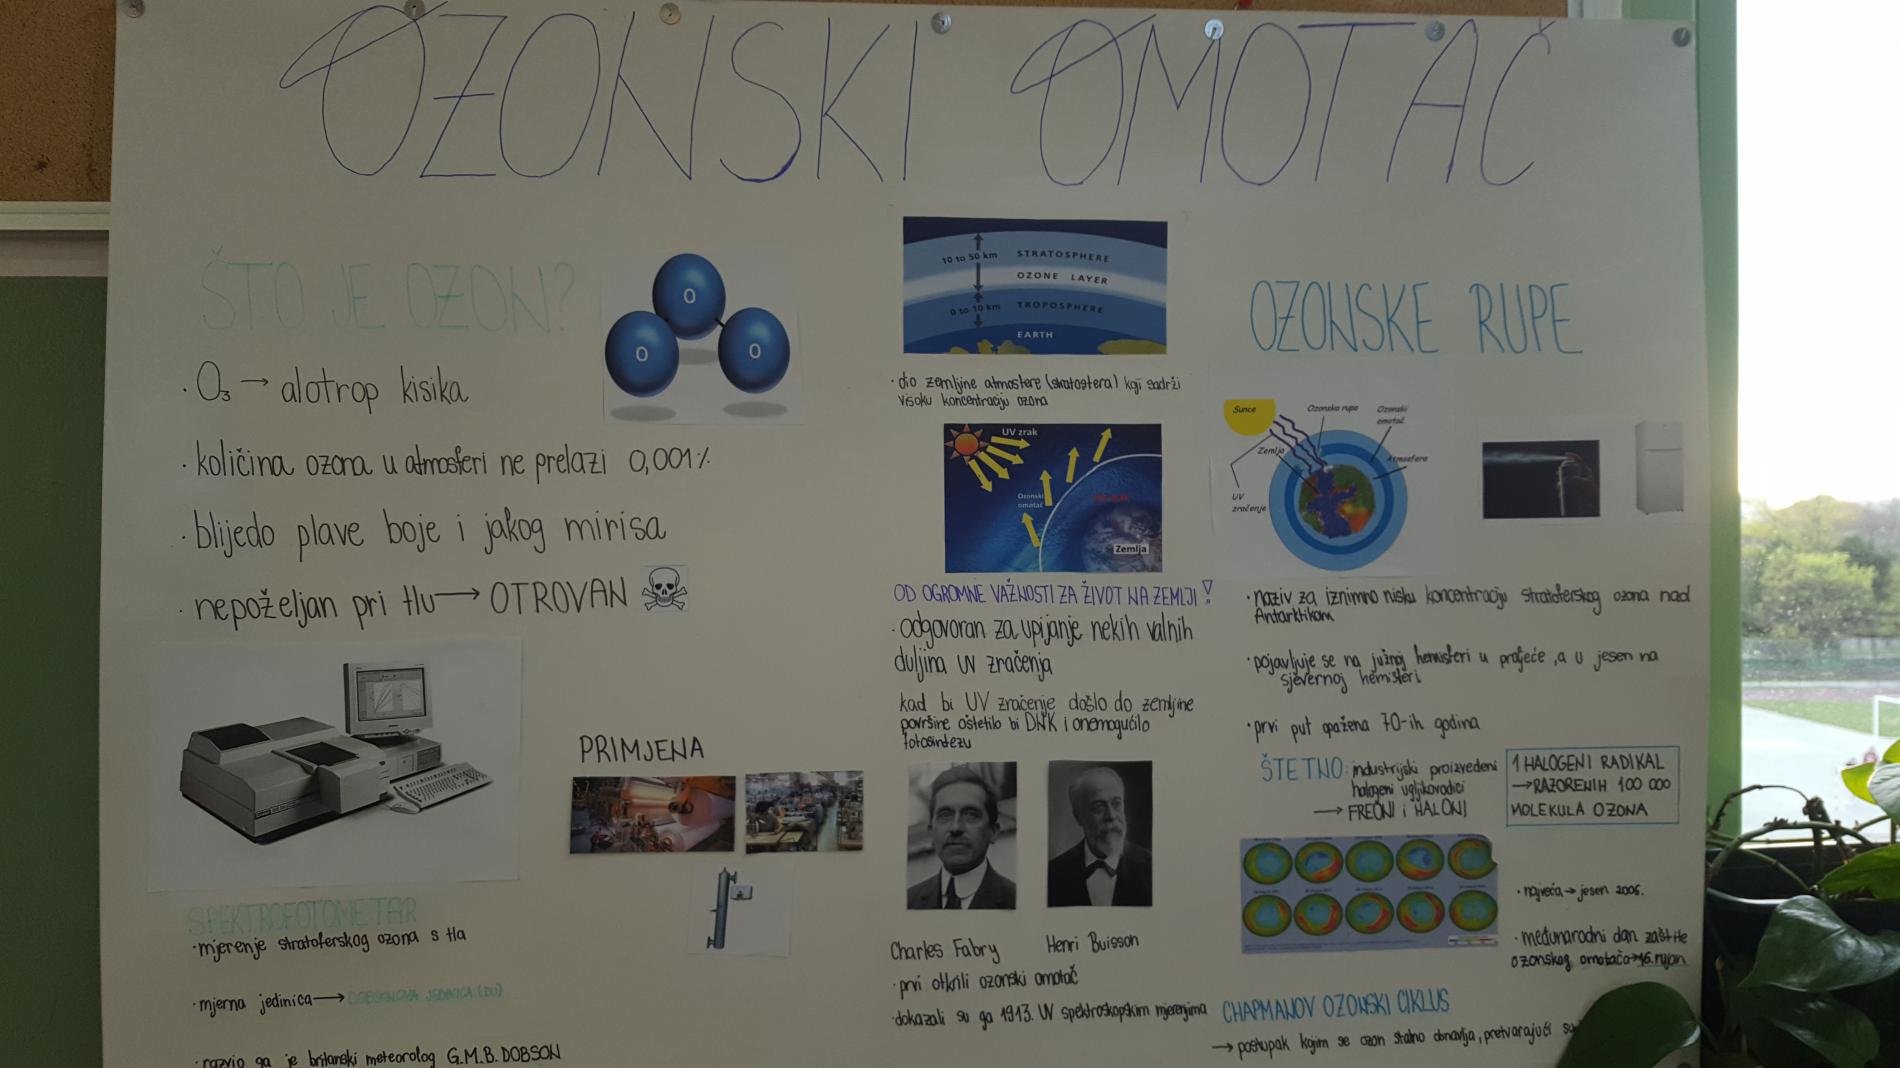 OZONSKI OMOTAČ
ŠTO JE OZON?
O
O
O
· O₃ → alotrop kisika
· količina ozona u atmosferi ne prelazi 0,001%
· blijedo plave boje i jakog mirisa
· nepoželjan pri tlu → OTROVAN
SPEKTROFOTOMETAR
· mjerenje stratoferskog ozona s tla
· mjerna jedinica → DOBSONOVA JEDINICA (DU)
· razvio ga je britanski meteorolog G.M.B. DOBSON
PRIMJENA
10 to 50 km STRATOSPHERE
OZONE LAYER
0 to 10 km TROPOSPHERE
EARTH
· dio zemljine atmosfere (stratosfera) koji sadrži
visoku koncentraciju ozona
UV zrak
Ozonski
omotač
Zemlja
OD OGROMNE VAŽNOSTI ZA ŽIVOT NA ZEMLJI!
· odgovoran za upijanje nekih valnih
duljina UV zračenja
kad bi UV zračenje došlo do zemljine
površine oštetilo bi DNK i onemogućilo
fotosintezu
Charles Fabry
Henri Buisson
· prvi otkrili ozonski omotač
· dokazali su ga 1913. UV spektroskopskim mjerenjima
OZONSKE RUPE
Sunce
Ozonska rupa
Ozonski
omotač
Zemlja
Atmosfera
UV
zračenje
· naziv za iznimno nisku koncentraciju stratoferskog ozona nad
Antarktikom
· pojavljuje se na južnoj hemisferi u proljeće, a u jesen na
sjevernoj hemisferi
· prvi put opažena 70-ih godina
ŠTETNO: industrijski proizvedeni
halogeni ugljikovodici
→ FREONI i HALONI
1 HALOGENI RADIKAL
→ RAZORENIH 100 000
MOLEKULA OZONA
· najveća → jesen 2006.
· međunarodni dan zaštite
ozonskog omotača → 16. rujan
CHAPMANOV OZONSKI CIKLUS
→ postupak kojim se ozon stalno obnavlja, pretvarajući